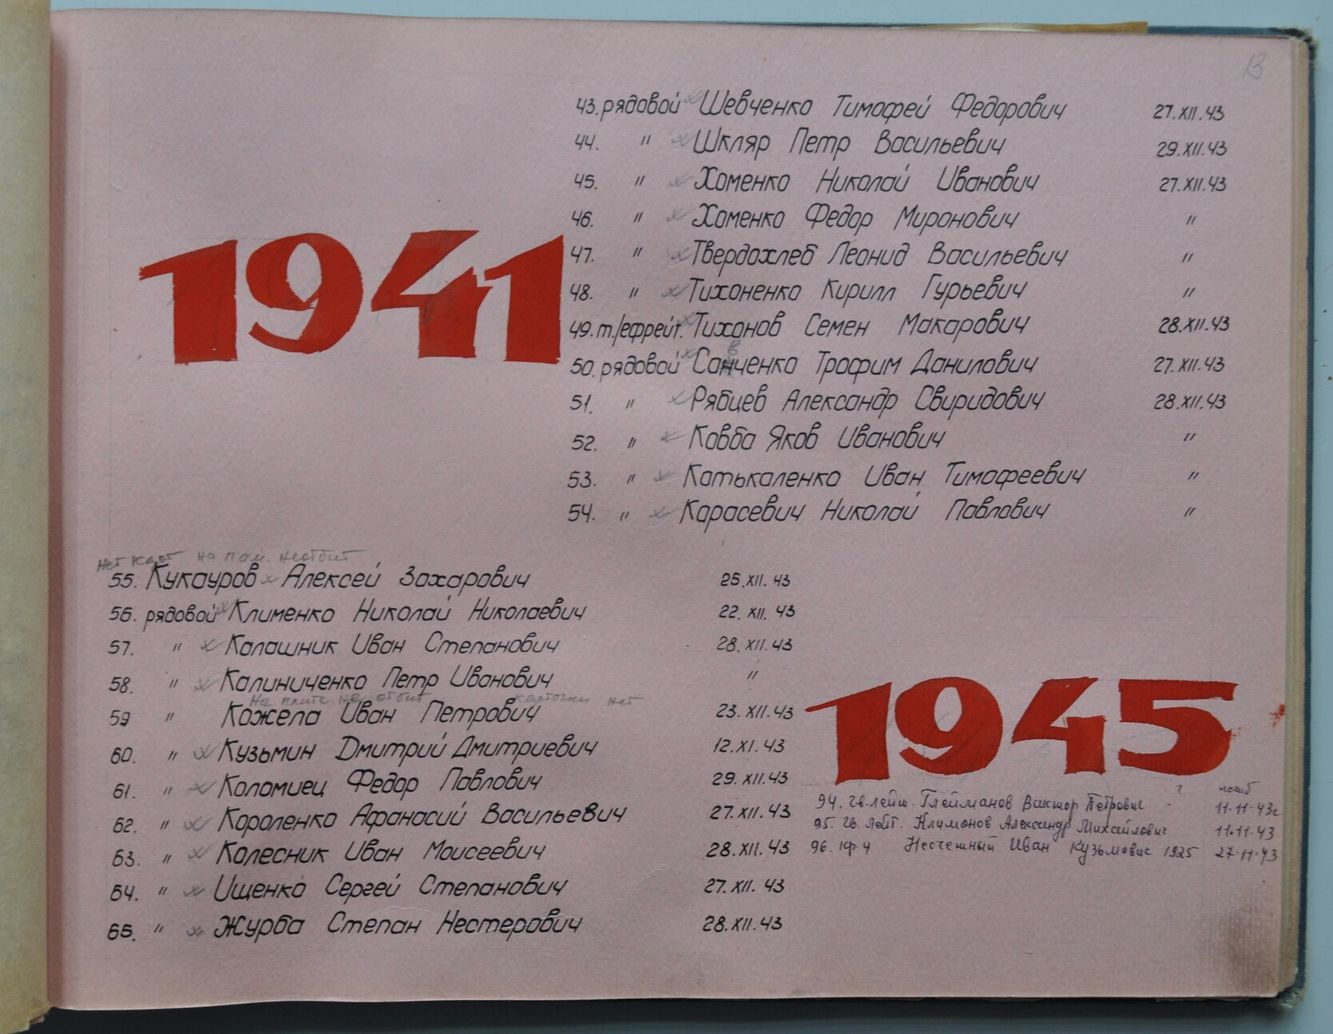 13
43. рядовой Шевченко Тимофей Федорович 27.XII.43
44. " Шкляр Петр Васильевич 29.XII.43
45. " Хоменко Николай Иванович 27.XII.43
46. " Хоменко Федор Миронович "
47. " Твердохлеб Леонид Васильевич "
48. " Тихоненко Кирилл Гурьевич "
49. т./ефрейт. Тихонов Семен Макарович 28.XII.43
50. рядовой Санченко Трофим Данилович 27.XII.43
51. " Рябцев Александр Свиридович 28.XII.43
52. " Ковба Яков Иванович "
53. " Катькаленко Иван Тимофеевич "
54. " Карасевич Николай Павлович "
1941
Нет карт на пам. неотбит
55. Кукауров Алексей Захарович 25.XII.43
56. рядовой Клименко Николай Николаевич 22.XII.43
57. " Калашник Иван Степанович 28.XII.43
58. " Калиниченко Петр Иванович "
На плите не отбит карточки нет
59 " Кожела Иван Петрович 23.XII.43
60. " Кузьмин Дмитрий Дмитриевич 12.XI.43
61. " Коломиец Федор Павлович 29.XII.43
62. " Короленко Афанасий Васильевич 27.XII.43
63. " Колесник Иван Моисеевич 28.XII.43
64. " Ищенко Сергей Степанович 27.XII.43
65. " Журба Степан Нестерович 28.XII.43
1945
? погиб
94. гв. лейт. Глейманов Виктор Петрович - 11.11.43г
95. гв. лейт. Климонов Александр Михайлович 11.11.43
96. Несчетный Иван Кузьмович 1925 27.11.43